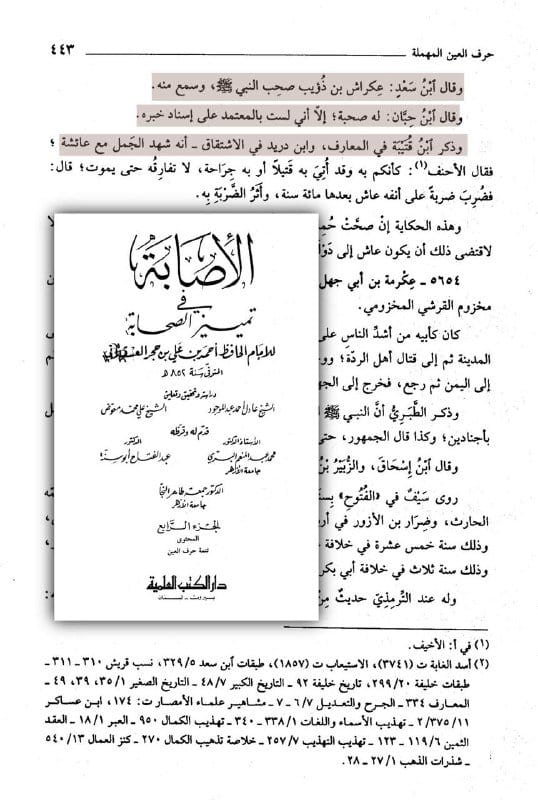 حرف العين المهملة ٤٤٣
وقال ابْنُ سَعْدٍ: عِكراش بن ذُؤيب صحِب النبي ﷺ، وسمع منه.
وقال ابْنُ حِبَّان: له صحبة؛ إلَّا أني لست بالمعتمد على إسناد خبره.
وذكر ابْنُ قُتَيْبَة في المعارف، وابن دريد في الاشتقاق ـ أنه شهد الجَمل مع عائشة؛
فقال الأحنف(١): كأنكم به وقد أُتِيَ به قَتيلًا أو به جِرَاحة، لا تفارقُه حتى يموت؛ قال:
فضُرِبَ ضربةً على أنفه عاش بعدها مائة سنة، وأثَرُ الضَّرْبَةِ بِه.
وهذه الحكاية إنْ صحَّتْ
لاقتضى ذلك أن يكون عاش إلى
٥٦٥٤ ـ عِكْرمة بن أبي جهل
مخزوم القرشي المخزومي.
كان كأبيه من أشدِّ الناسِ على
المدينة ثم إلى قتال أهل الردّة؛
إلى اليمن ثم رجع، فخرج إلى
وذكر الطَّبَرِيُّ أنَّ النبي ﷺ
بأجنادين؛ وكذا قال الجمهور، حتى
وقال ابْنُ إِسْحَاقَ، والزُّبَيْرُ
روى سَيْفٌ في «الفُتُوحِ»
الحارث، وضِرَار بن الأزور في
وذلك سنة خمس عشرة في خلافة
وذلك سنة ثلاث في خلافة أبي بكر
وله عند التِّرمِذِيّ حديثٌ
الإصابة
في
تمييز الصحابة
للامام الحافظ أحمد بن علي بن حجر العسقلاني
المتوفى سنة ٨٥٢ هـ
دراسة وتحقيق وتعليق
الشيخ عادل أحمد عبد الموجود الشيخ علي محمد معوض
قدم له وقرظه
الأستاذ الدكتور الدكتور
محمد عبد المنعم البري عبد الفتاح أبو سنة
جامعة الأزهر
الدكتور جمعة طاهر النجار
جامعة الأزهر
الجزء الرابع
المحتوى
تتمة حرف العين
دار الكتب العلمية
بيروت ـ لبنان
(١) في أ: الأخيف.
(٢) أسد الغابة ت (٣٧٤١)، الاستيعاب ت (١٨٥٧)، طبقات ابن سعد ٣٢٩/٥، نسب قريش ٣١٠ ـ ٣١١ ـ
طبقات خليفة ٢٩٩/٢٠، تاريخ خليفة ٩٢ ـ التاريخ الكبير ٤٨/٧ ـ التاريخ الصغير ٣٥/١، ٣٩، ٤٩ ـ
المعارف ٣٣٤ ـ الجرح والتعديل ٦/٧ ـ ٧ ـ مشاهير علماء الأمصار ت: ١٧٤، ابن عساكر
٣٧٥/٢/١١ ـ تهذيب الأسماء واللغات ٣٣٨/١ ـ ٣٤٠ ـ تهذيب الكمال ٩٥٠ ـ العبر ١٨/١ ـ العقد
الثمين ١١٩/٦ ـ ١٢٣ ـ تهذيب التهذيب ٢٥٧/٧ ـ خلاصة تذهيب الكمال ٢٧٠ ـ كنز العمال ٥٤٠/١٣
ـ شذرات الذهب ٢٧/١ ـ ٢٨.